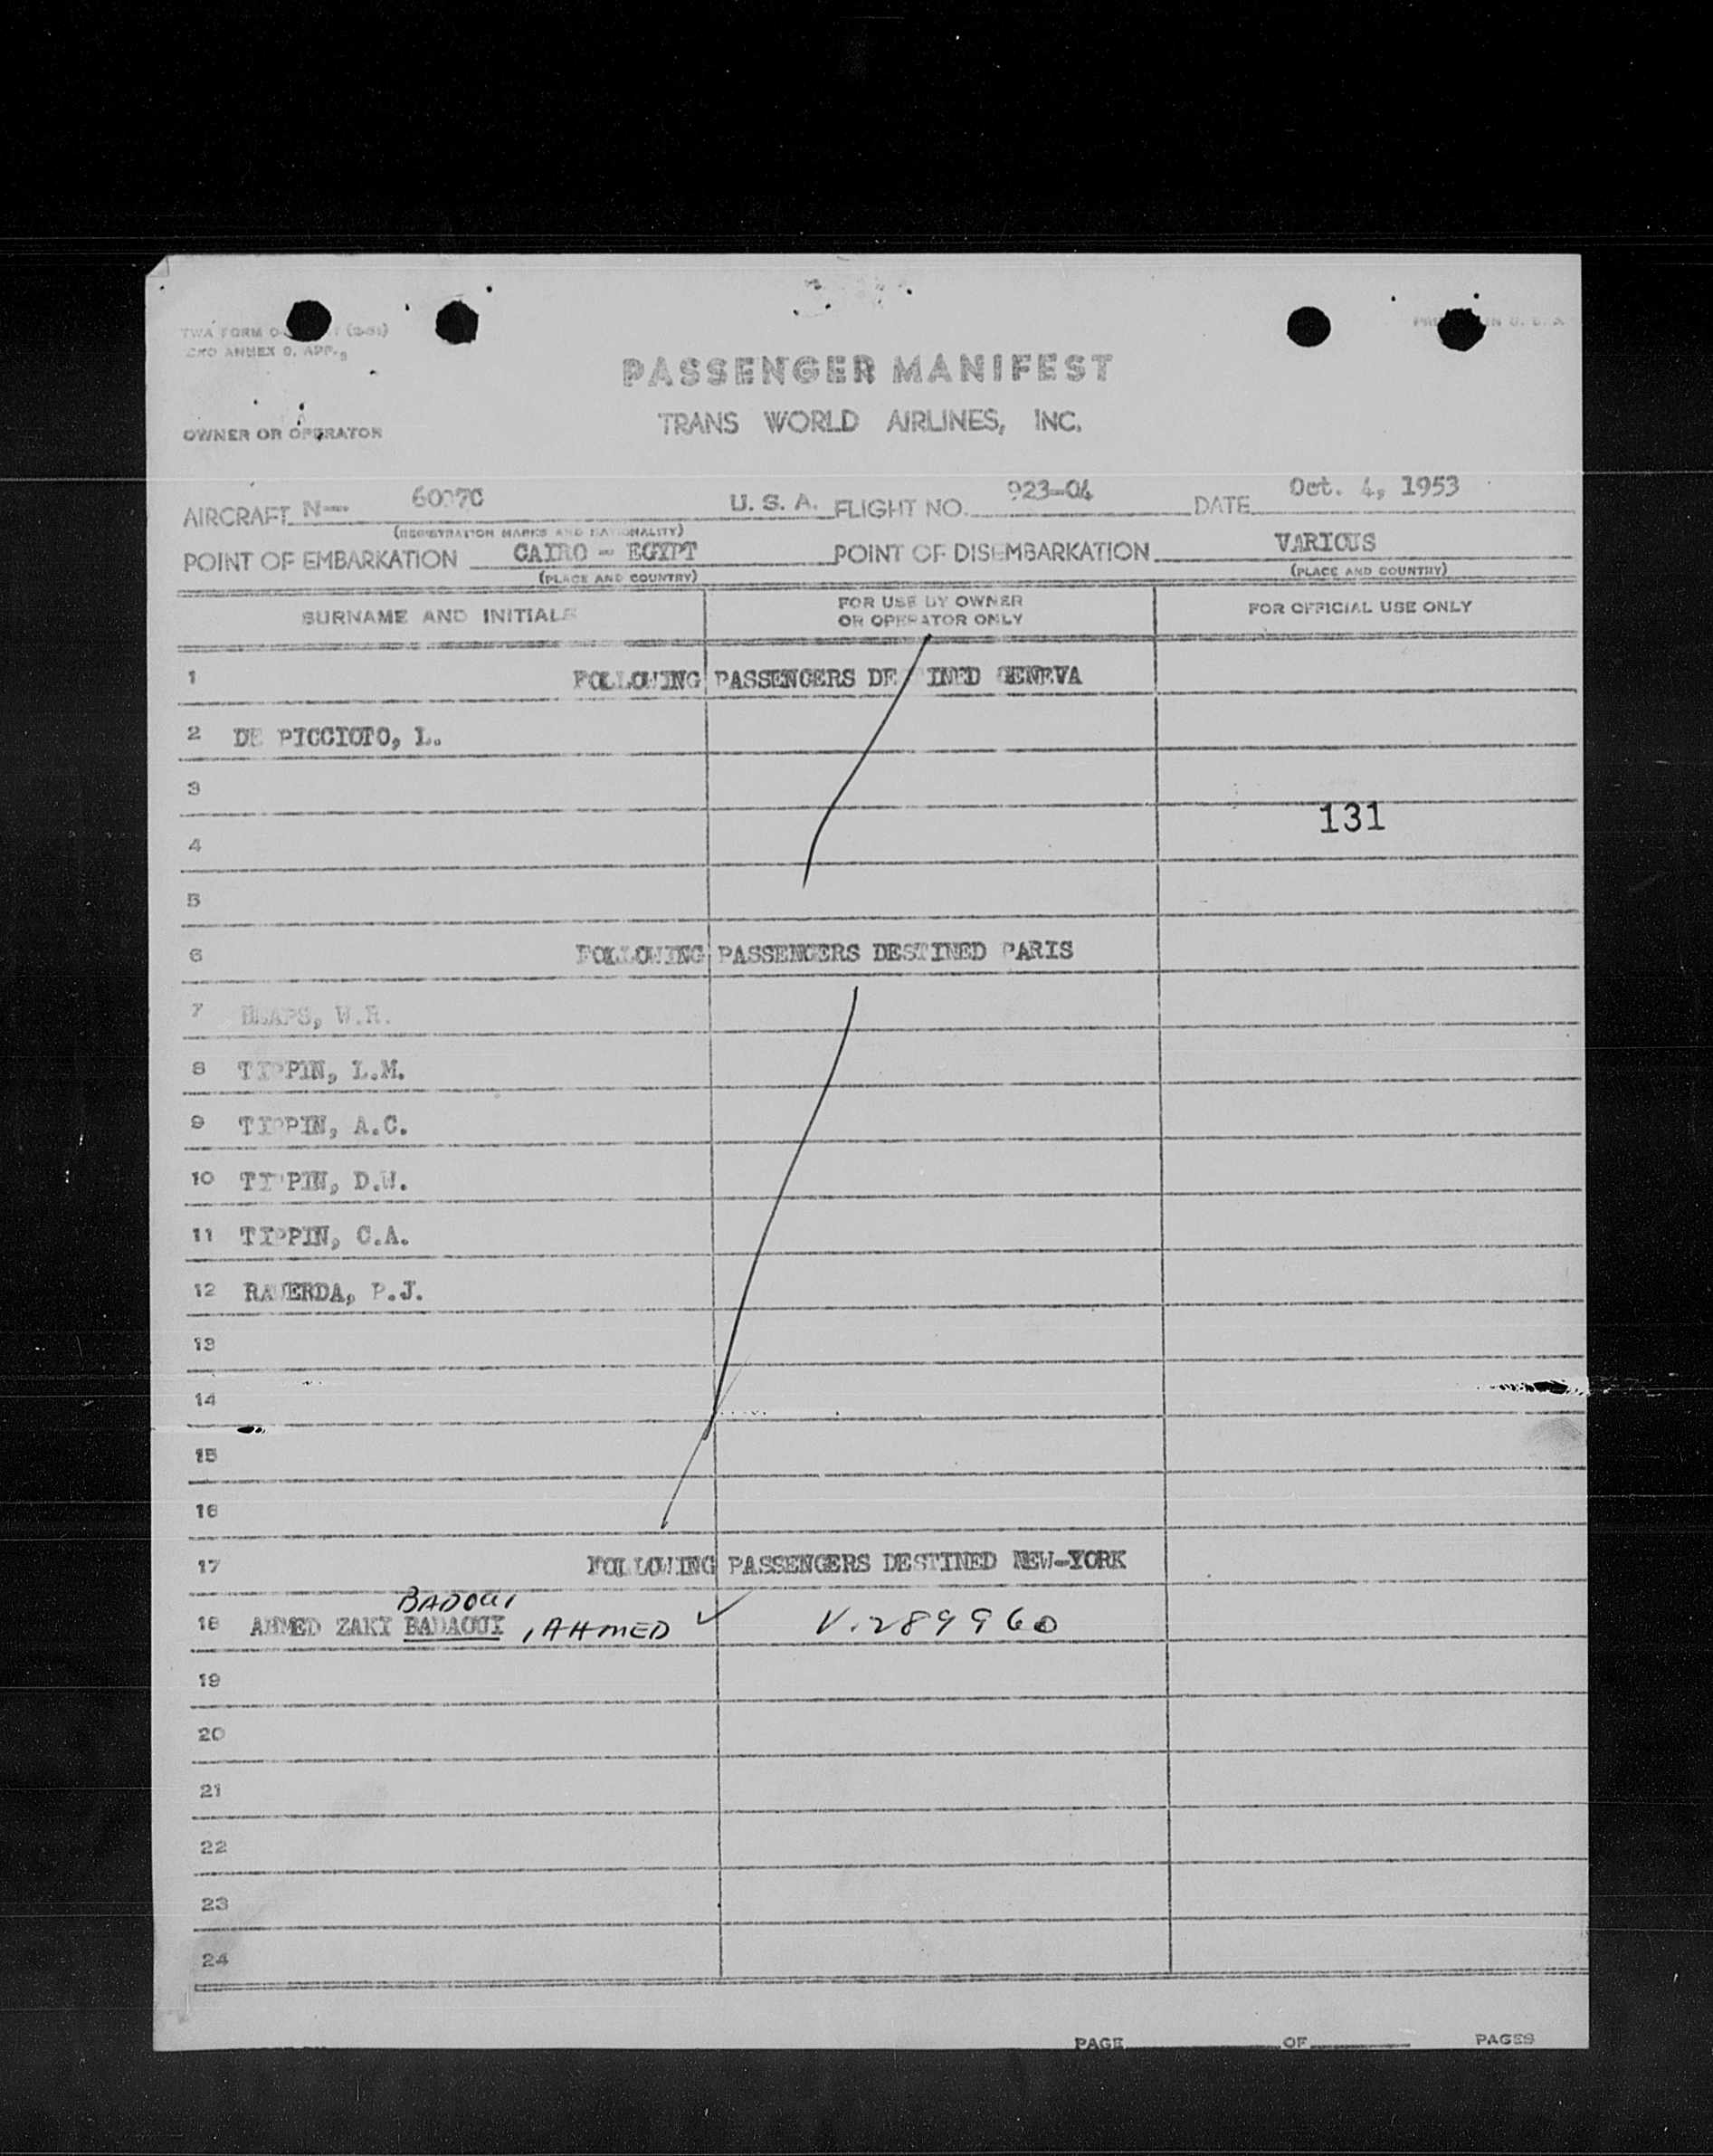 TWA FORM (2-51) PRINTED IN U. S. A.
ANNEX 9, APP.
PASSENGER MANIFEST
TRANS WORLD AIRLINES, INC.
OWNER OR OPERATOR
AIRCRAFT N-- U. S. A. FLIGHT NO. 923-04 DATE Oct. 4, 1953
(REGISTRATION MARKS AND NATIONALITY)
POINT OF EMBARKATION CAIRO - EGYPT POINT OF DISEMBARKATION VARIOUS
(PLACE AND COUNTRY) (PLACE AND COUNTRY)
SURNAME AND INITIALS FOR USE BY OWNER OR OPERATOR ONLY FOR OFFICIAL USE ONLY
1 FOLLOWING PASSENGERS DESTINED GENEVA
2 DE PICCIOTO, L.
3
131
4
5
6 FOLLOWING PASSENGERS DESTINED PARIS
7 HEAPS, W.R.
8 TIPPIN, L.M.
9 TIPPIN, A.C.
10 TIPPIN, D.W.
11 TIPPIN, C.A.
12 P.J.
13
14
15
16
17 FOLLOWING PASSENGERS DESTINED NEW-YORK
BADOUI
18 AHMED ZAKI BADAOUI , AHMED ✓ V.289960
19
20
21
22
23
24
PAGE OF PAGES